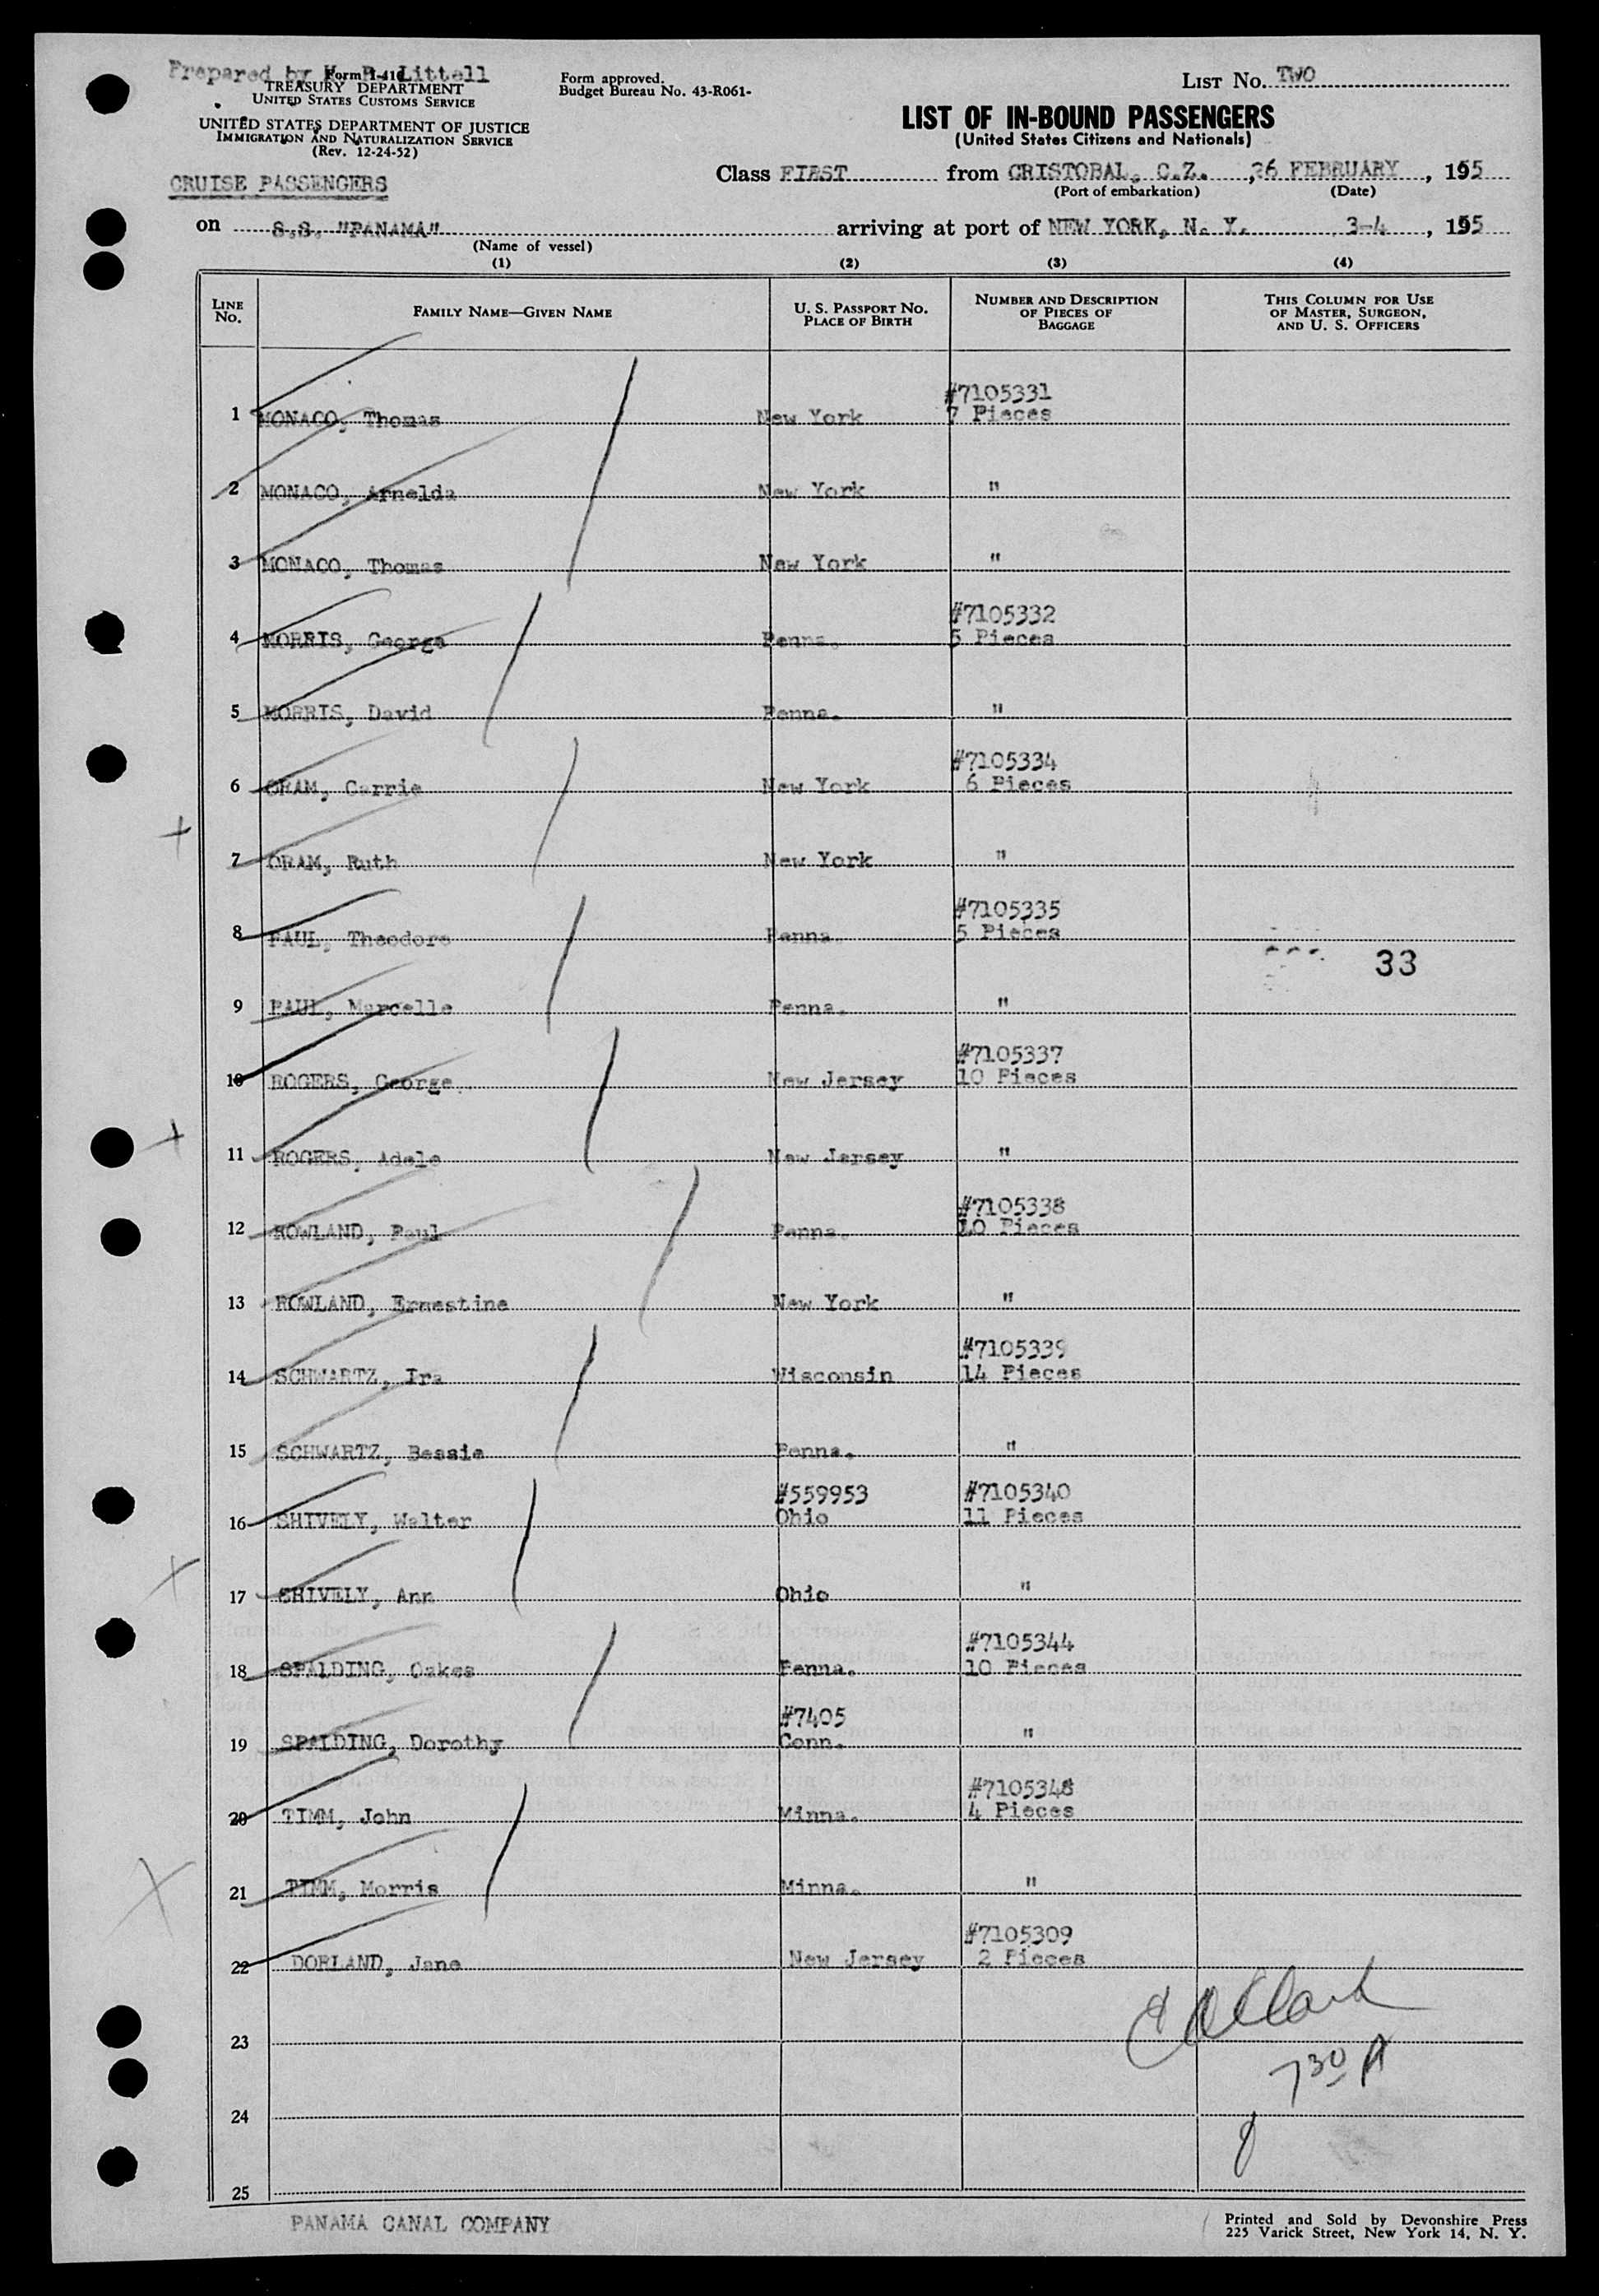 Prepared by H. P. Littell
Form I-416
TREASURY DEPARTMENT
UNITED STATES CUSTOMS SERVICE
UNITED STATES DEPARTMENT OF JUSTICE
IMMIGRATION AND NATURALIZATION SERVICE
(Rev. 12-24-52)
CRUISE PASSENGERS
Form approved.
Budget Bureau No. 43-R061-
LIST No. TWO
LIST OF IN-BOUND PASSENGERS
(United States Citizens and Nationals)
Class FIRST from CRISTOBAL, C.Z. , 26 FEBRUARY , 1955
(Port of embarkation) (Date)
on S.S. "PANAMA" arriving at port of NEW YORK, N. Y. 3-4 , 1955
(Name of vessel)
(1) (2) (3) (4)
LINE No. FAMILY NAME—GIVEN NAME U. S. PASSPORT No. PLACE OF BIRTH NUMBER AND DESCRIPTION OF PIECES OF BAGGAGE THIS COLUMN FOR USE OF MASTER, SURGEON, AND U. S. OFFICERS
#7105331
1 MONACO, Thomas New York 7 Pieces
2 MONACO, Arnelda New York "
3 MONACO, Thomas New York "
#7105332
4 MORRIS, George Penna. 5 Pieces
5 MORRIS, David Penna. "
#7105334
6 ORAM, Carrie New York 6 Pieces
7 ORAM, Ruth New York "
#7105335
8 PAUL, Theodore Penna. 5 Pieces
33
9 PAUL, Marcelle Penna. "
#7105337
10 ROGERS, George New Jersey 10 Pieces
11 ROGERS, Adele New Jersey "
#7105338
12 ROWLAND, Paul Penna. 10 Pieces
13 ROWLAND, Ernestine New York "
#7105339
14 SCHWARTZ, Ira Wisconsin 14 Pieces
15 SCHWARTZ, Bessie Penna. "
#559953 #7105340
16 SHIVELY, Walter Ohio 11 Pieces
17 SHIVELY, Ann Ohio "
#7105344
18 SPALDING, Oakes Penna. 10 Pieces
#7405
19 SPALDING, Dorothy Conn. "
#7105348
20 TIMM, John Minna. 4 Pieces
21 TIMM, Morris Minna. "
#7105309
22 DORLAND, Jane New Jersey 2 Pieces
Clark
23
7 30 A
24
25
PANAMA CANAL COMPANY
Printed and Sold by Devonshire Press
225 Varick Street, New York 14, N. Y.